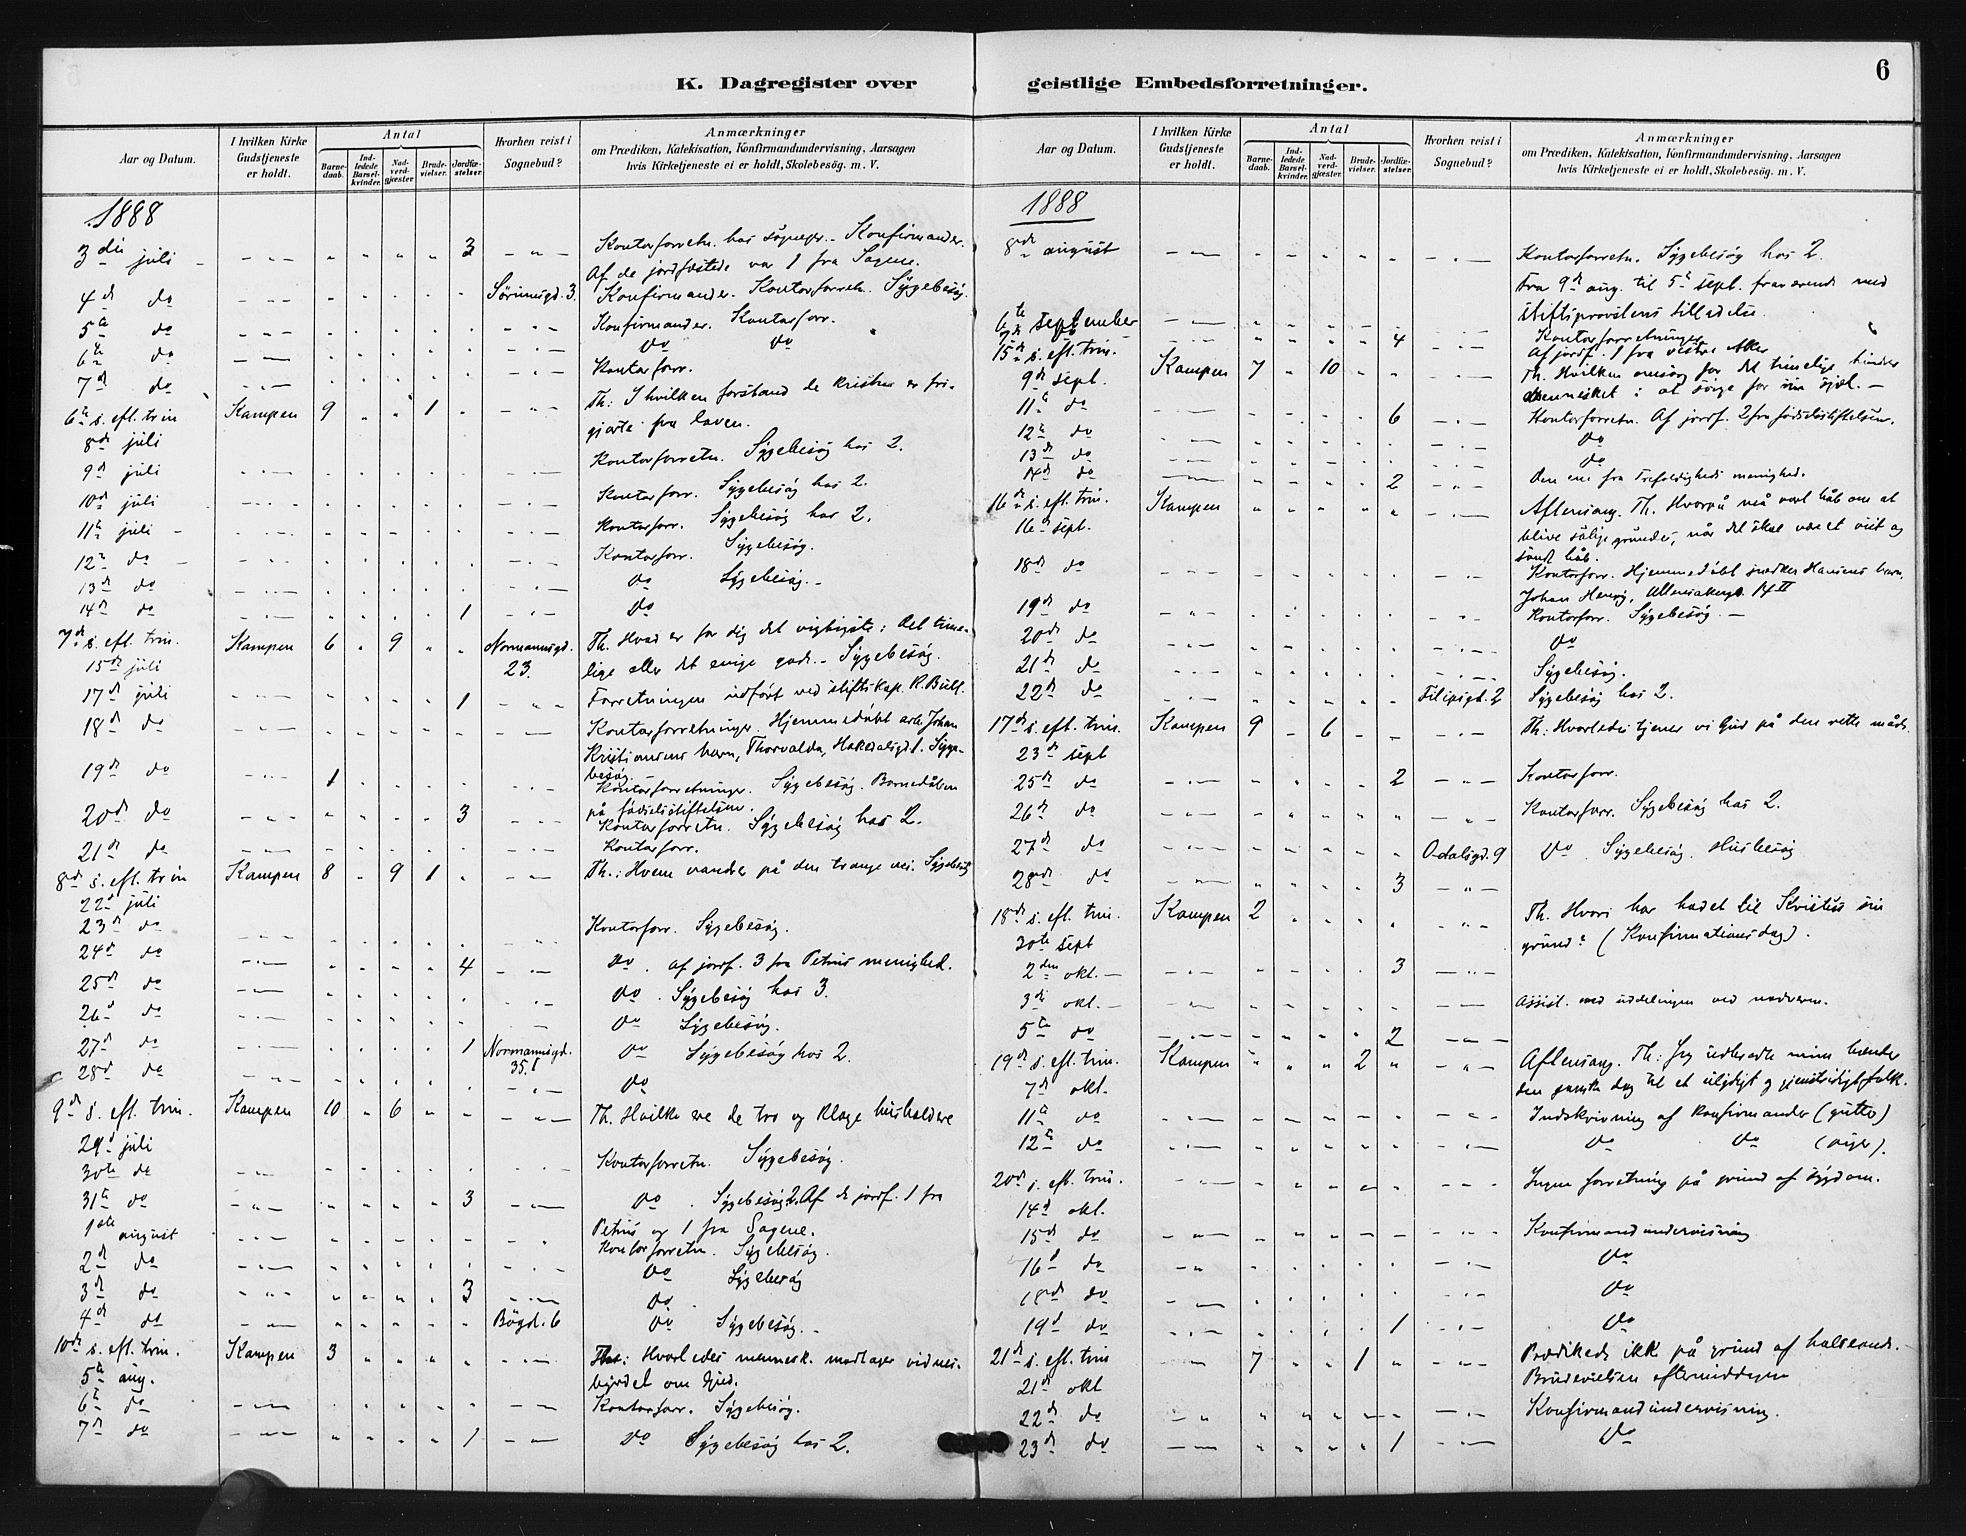 K. Dagregister over geistlige Embedsforretninger.
6
Aar og Datum.
I hvilken Kirke Gudstjeneste er holdt.
Antal
Barnedaab.
Indledede Barselkvinder.
Nadverdgjæster.
Brudevielser.
Jordfæstelser.
Hvorhen reist i Sognebud?
Anmærkninger
om Prædiken, Katekisation, Konfirmandundervisning, Aarsagen
hvis Kirketjeneste ei er holdt, Skolebesög. m. V.
1888
3die juli 3 Kontorforretn. hos sognepr. - Konfirmander.
Af de jordfæstede var 1 fra Sagene.
4d do Sörumsgd. 3. Konfirmander. Kontorforretn. Sygebesög.
5te do Konfirmander. Kontorforr.
6te do Do Do
7d do Kontorforr.
6te s. eft. trin Kampen 9 1 Th: I hvilken forstand de kristne er fri-
8de juli gjorte fra loven.
9d juli Kontorforretn. Sygebesög hos 2.
10d juli Kontorforr. Sygebesög hos 2.
11te juli Kontorforr. Sygebesög hos 2.
12te do Kontorforr. Sygebesög.
13d do Do Sygebesög.
14d do 1 Do
7d s. eft. trin. Kampen 6 9 Normannsgd. 23. Th. Hvad er for dig det vigtigste: det time-
15d juli lige eller det evige gode. - Sygebesög.
17d juli 1 Forretningen udfört ved stiftskap. K. Bull.
18d do Kontorforretninger. Hjemmedöbt arb. Johan
Kristiansens barn, Thorvalda, Hakedalsgd. 1. Syge-
besög.
19d do 1 Kontorforretninger. Sygebesög. Barnedåben
på födselsstiftelsen.
20de do 3 Kontorforretn. Sygebesög hos 2.
21d do Kontorforr.
8de s. eft. trin Kampen 8 9 1 Th.: Hvem vandrer på den trange vei. Sygebesög
22d juli
23d do Kontorforr. Sygebesög.
24d do 4 Do. af jordf. 3 fra Petrus menighed.
25d do Do. Sygebesög hos 3.
26d do Do Sygebesög.
27d do 1 Normannsgd. 35. Do Sygebesög hos 2.
28d do Do
9d s. eft. trin. Kampen 10 6 Th. Hvilke ere de tro og kloge husholdere
29d juli
30te do Kontorforretn. Sygebesög.
31te do 3 Do. Sygebesög 2. Af de jordf. 1 fra
Petrus og 1 fra Sagene.
1ste august Kontorforretn. Sygebesög.
2d do Do Sygebesög
3d do 3 Do
4d do Bögd. 6 Do Sygebesög.
10de s. eft. trin. Kampen 3 Th: Hvorledes mennesk. modtager vidnes-
5te aug. byrdet om Gud.
6te do Kontorforr. Sygebesög.
7d do 1 Do Sygebesög hos 2.
Aar og Datum.
I hvilken Kirke Gudstjeneste er holdt.
Antal
Barnedaab.
Indledede Barselkvinder.
Nadverdgjæster.
Brudevielser.
Jordfæstelser.
Hvorhen reist i Sognebud?
Anmærkninger
om Prædiken, Katekisation, Konfirmandundervisning, Aarsagen
hvis Kirketjeneste ei er holdt, Skolebesög. m. V.
1888
8de august Kontorforretn. Sygebesög hos 2.
Fra 9d aug. til 5te sept. fraværende med
stiftsprovstens tilladelse.
6te september Kontorforretninger
7d 4 Af jordf. 1 fra vestre Aker
15d s. eft. trin. Kampen 7 10 Th. Hvilken omsorg for det timelige hindrer
9d sept. mennesket i at sörge for sin sjæl. -
11te do 6 Kontorforretn. Af jordf. 2 fra födselsstiftelsen.
12te do Do
13d do Do
14d do 2 Den ene fra Trefoldigheds menighed.
16d s. eft. trin. Kampen Aftensang. Th. Hvorpå må vort håb om at
16d sept. blive salige grundes, når det skal være et vist og
sandt håb.
18d do Kontorforr. Hjemmedöbt snedker Hansens barn,
Johan Henrig, 14 II
19d do Kontorforr. Sygebesög. -
20de do Do
21d do Sygebesög.
22d do Filipsgd. 2 Sygebesög hos 2.
17d s. eft. trin. Kampen 9 6 Th: Hvorledes tjener vi Gud på den rette måde.
23d sept
25d do 2 Kontorforr.
26d do Kontorforr. Sygebesög hos 2.
27d do Odalsgd. 9 Do. Sygebesög. Husbesög
28de do 3
18de s. eft. trin. Kampen 2 Th. Hvori har hadet til Kristus sin
30te sept grund? (Konfirmationsdag).
2den okt. 3
3d okt. Assist. med uddelingen ved nadveren.
5te do 2
19d s. eft. trin. Kampen 2 Aftensang. Th: Jeg udbredte mine hænder
7d okt. den ganske dag til et ulydigt og gjenstridigt folk.
11te do Indskrivning af konfirmander (gutter)
12te do Do Do (piger).
20de s. eft. trin. Ingen forretning på grund af sygdom.
14d okt.
15d do Konfirmandundervisning
16d do Do
18de do Do
19d do 1 Do
21d s. eft. trin 7 1 Prædikede ikke på grund af halsonde.
21d okt Brudevielsen eftermiddagen
22d do Konfirmandundervisning.
23d do 1 Do